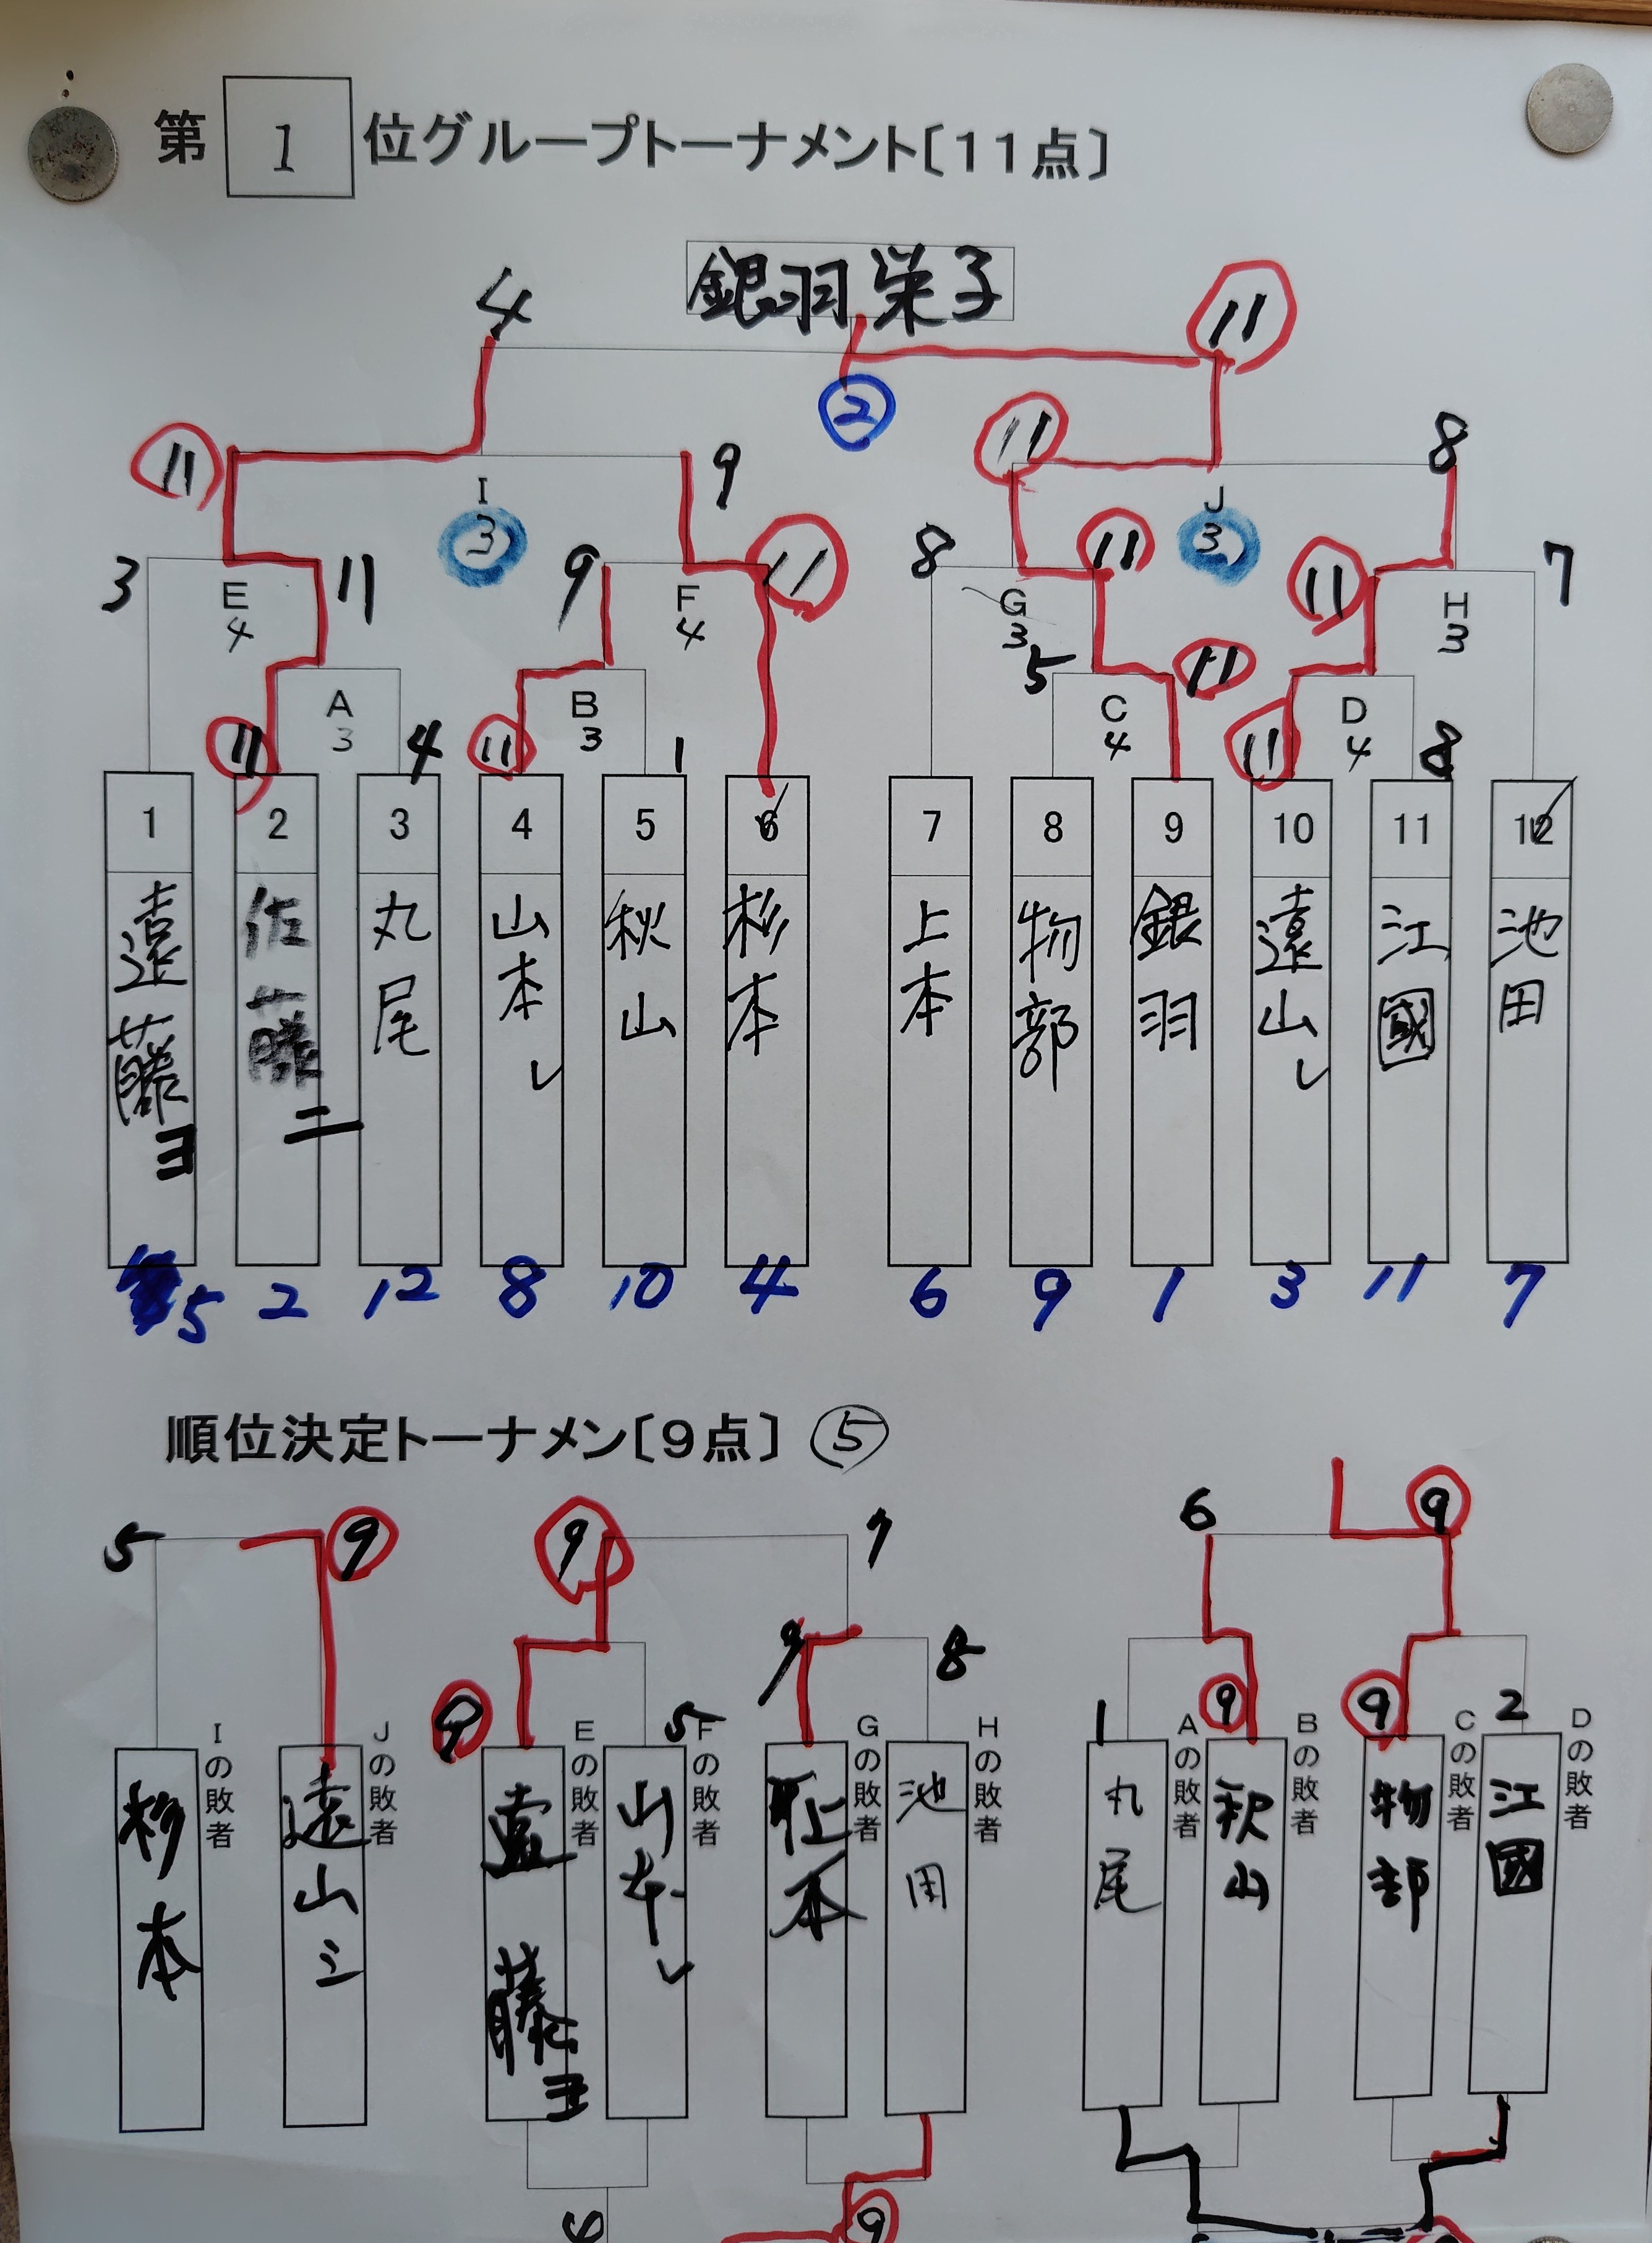 第 1 位グループトーナメント〔11点〕
銀羽栄子
4 11
②
11 9 11 8
I J
3 3
3 11 9 11 8 11 11 7
E F G H
4 4 3 3
5 11
A B C D
3 3 4 4
11 4 11 1 11 8
1 2 3 4 5 6 7 8 9 10 11 12
遠藤ヨ
佐藤ニ
丸尾
山本レ
秋山
杉本
上本
物部
銀羽
遠山レ
江國
池田
5 2 12 8 10 4 6 9 1 3 11 7
順位決定トーナメン〔9点〕⑤
5 9 9 7 6 9
9 8
9 5 1 9 9 2
Iの敗者
Jの敗者
Eの敗者
Fの敗者
Gの敗者
Hの敗者
Aの敗者
Bの敗者
Cの敗者
Dの敗者
杉本
遠山ミ
遠藤ヨ
山本レ
上本
池田
丸尾
秋山
物部
江國
9